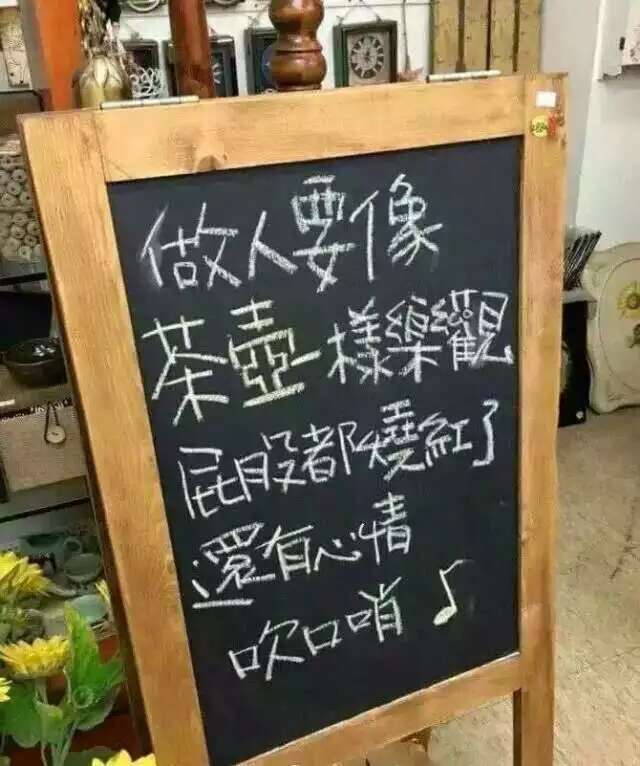 做人要像
茶壺一樣樂觀
屁股都燒紅了
還有心情
吹口哨♪